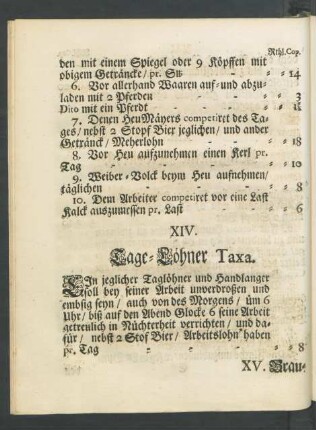 Rthl. Cop.
den mit einem Spiegel oder 9 Köpffen mit
obigem Getráncke / pr. Stk - - - 14
6. Vor allerhand Waaren auf- und abzu-
laden mit 2 Pferden - - - 3
Dito mit ein Pferdt - - - 11
7. Denen HeuMäyers competiret des Ta-
ges / nebst 2 Stopf Bier jeglichen / und ander
Getránck / Meherlohn - - - 18
8. Vor Heu aufzunehmen einen Kerl pr.
Tag - - - 10
9. Weiber-Volck beym Heu aufnehmen /
täglichen - - - 8
10. Dem Arbeiter competiret vor eine Last
Kalck auszumessen pr. Last - - - 6
XIV.
Tage-Löhner Taxa.
EIn jeglicher Taglöhner und Handlanger
soll bey seiner Arbeit unverdroßen und
embsig seyn / auch von des Morgens / üm 6
Uhr / biß auf den Abend Glocke 6 seine Arbeit
getreulich in Nüchterheit verrichten / und da-
für / nebst 2 Stof Bier / Arbeitslohn haben
pr. Tag - - - 8
XV. Brau-